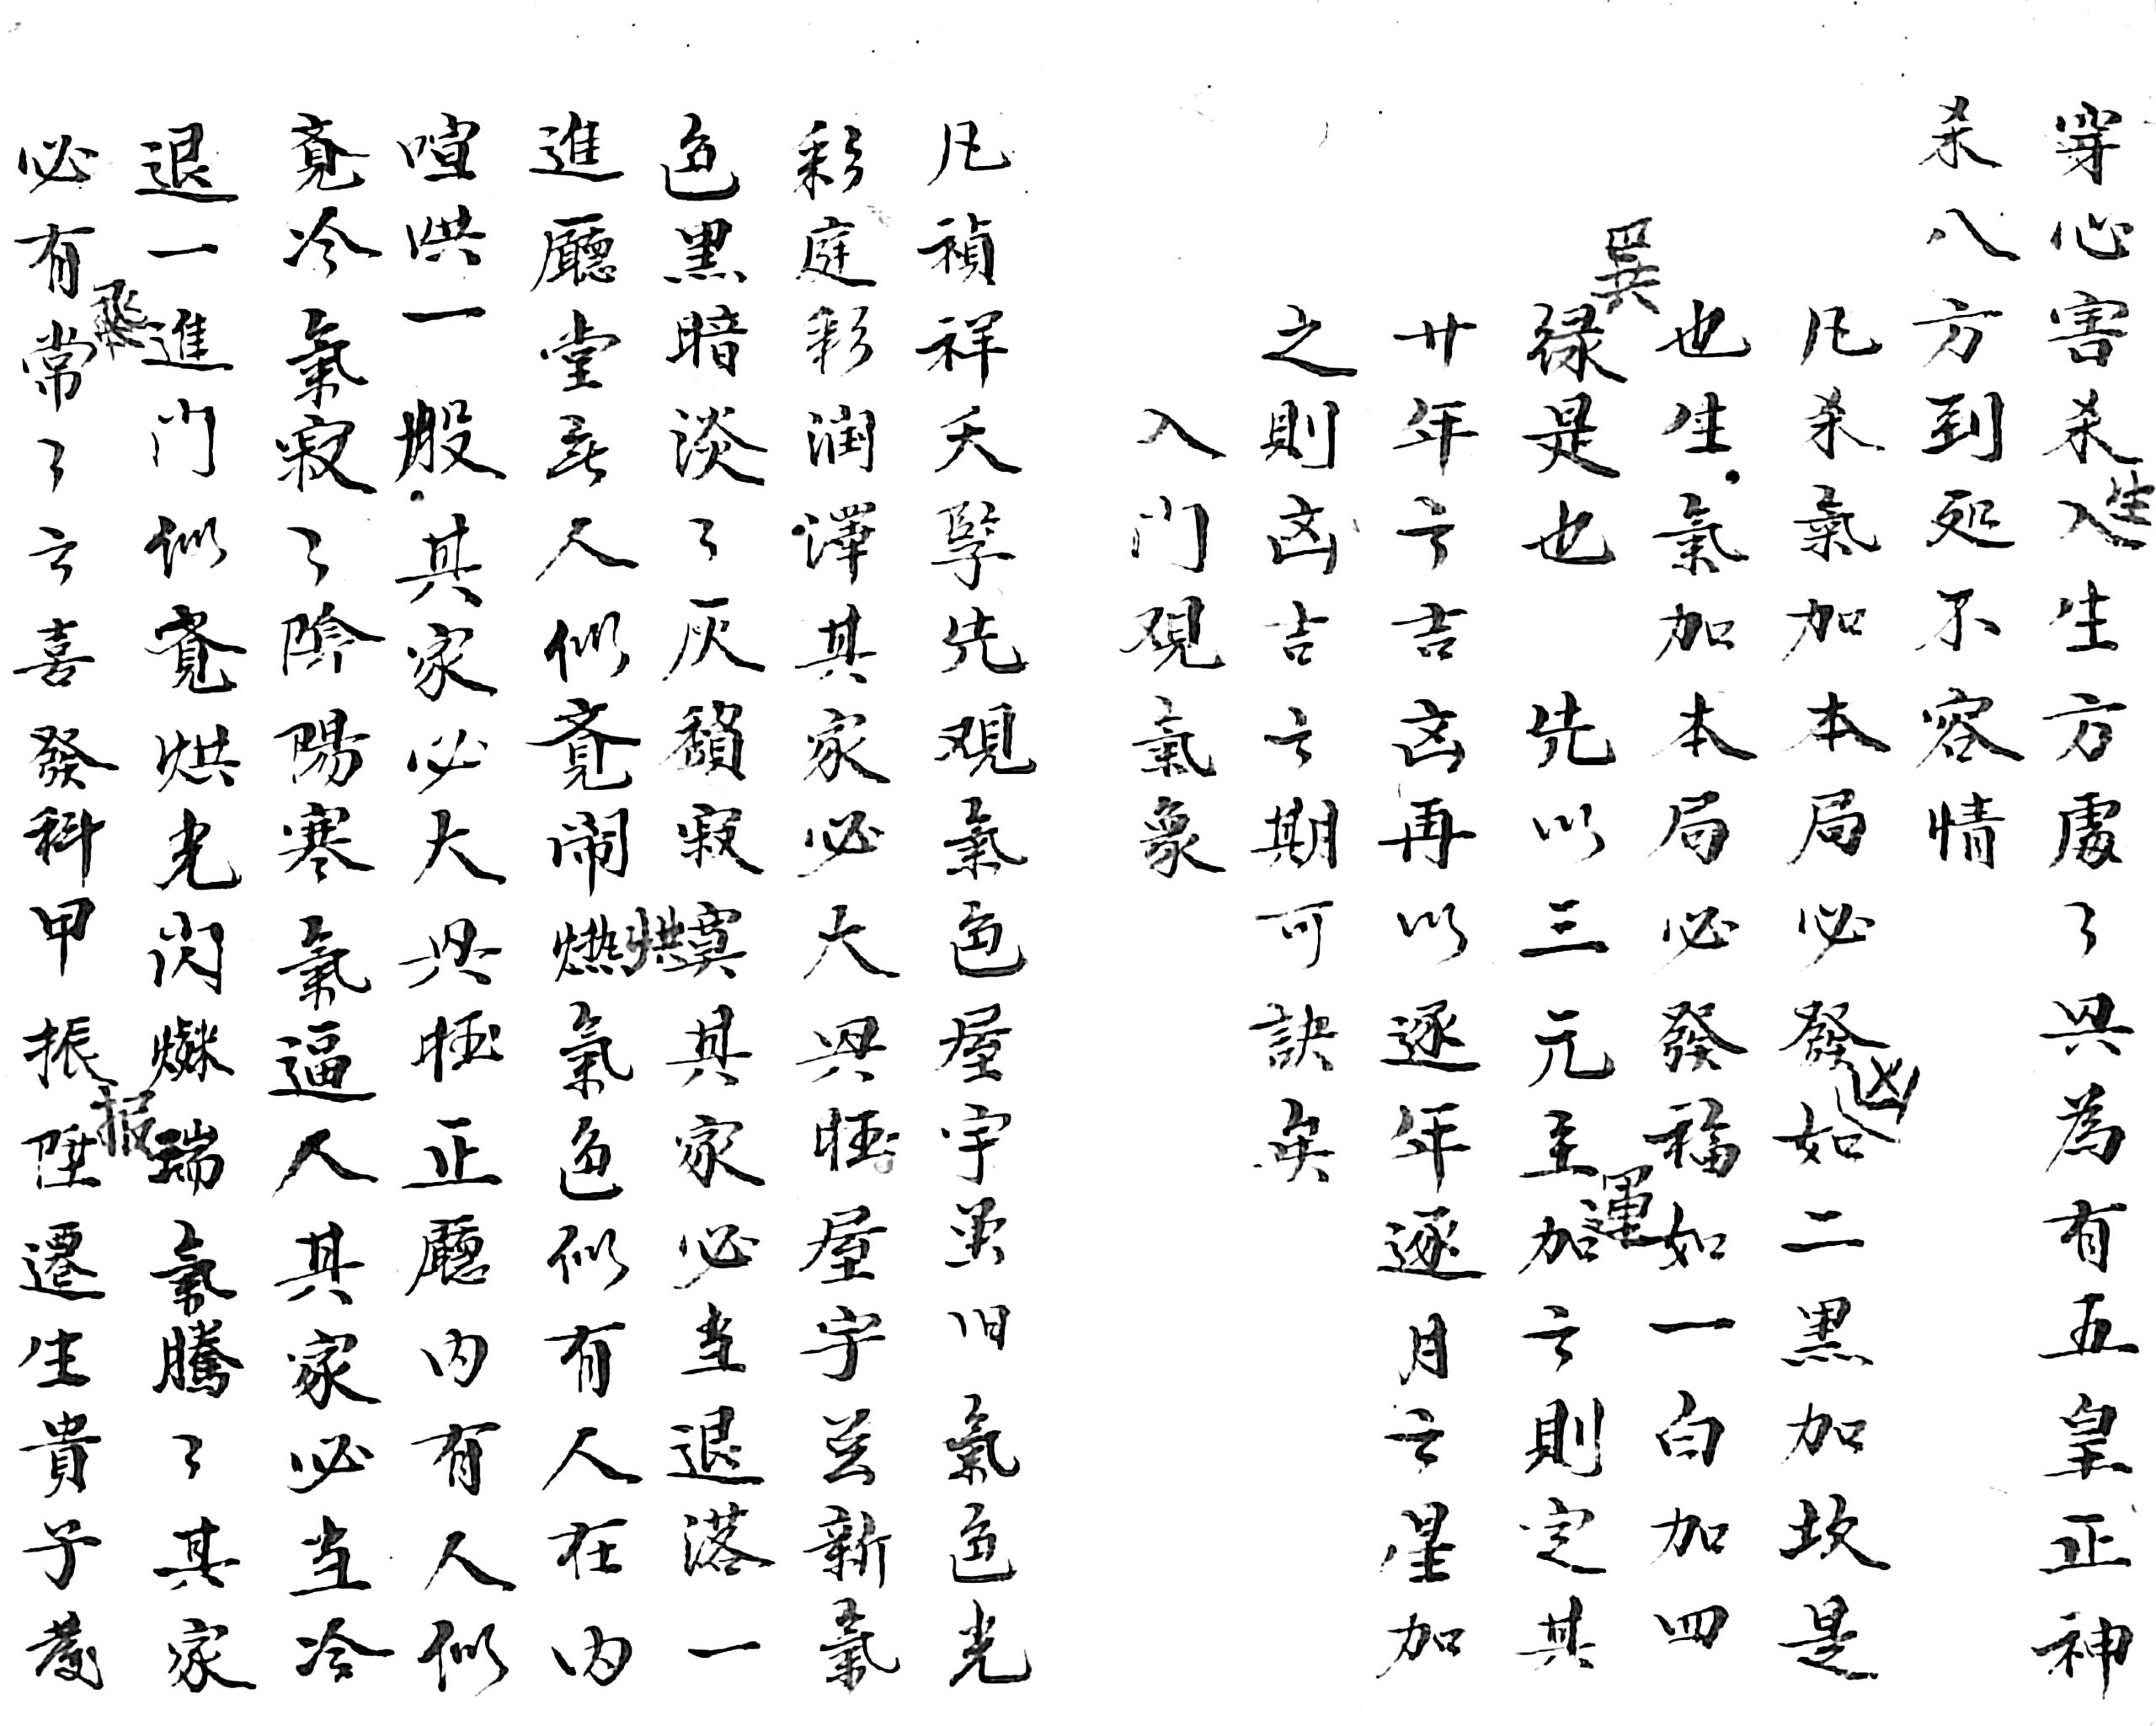 穿心害杀入生方處々興為有五皇正神
生
杀八方到処不容情
凡杀氣加本局必發如二黑加坎是
凶
也生氣加本局必發福如一白加四
禄是也 先以三元主加之則定其
巽
運
廿年之吉凶再以逐年逐月之星加
之則凶吉之期可訣矣
入門观氣象
凡禎祥夭孽先观氣色屋宇虽旧氣色光
彩庭彩润澤其家必大興旺屋宇並新氣
色黑暗淡々灰頽寂寞其家必主退落一
進廳堂無人似覔闹热氣色似有人在内
烘
喧哄一般其家必大興旺正廳内有人似
覔冷氣寂々陰陽寒氣逼人其家必主冷
退一進門似寬烘光闪爍瑞氣騰々其家
必有常々之喜發科甲振陞遷生貴子發
飛
报